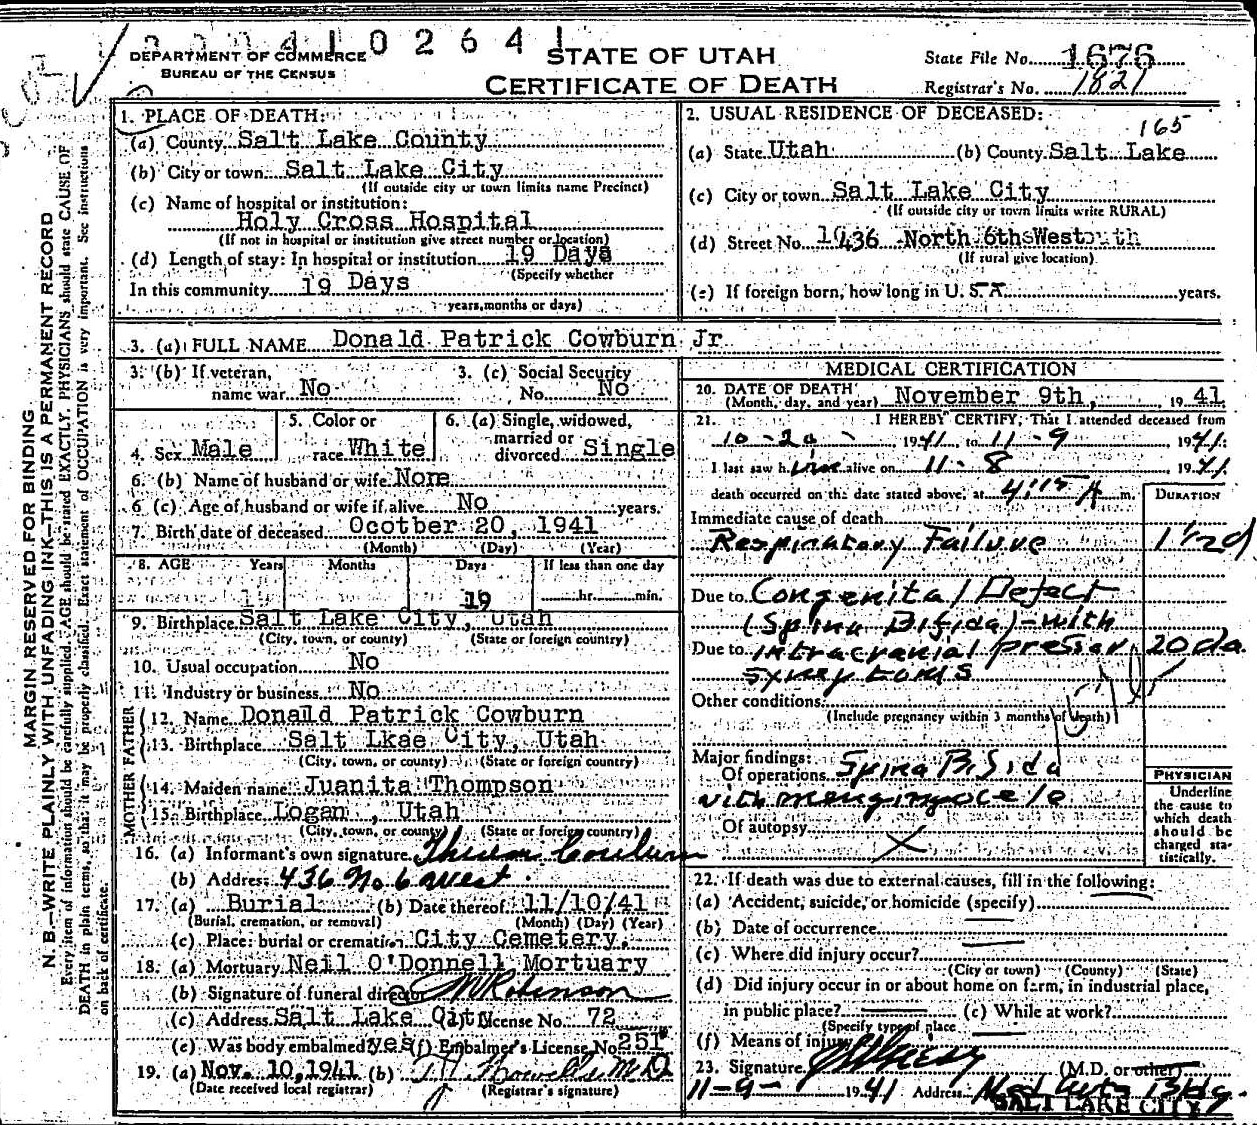 410264
DEPARTMENT OF COMMERCE
BUREAU OF THE CENSUS
STATE OF UTAH
CERTIFICATE OF DEATH
State File No. 1676
Registrar's No. 1821
MARGIN RESERVED FOR BINDING
N. B.—WRITE PLAINLY WITH UNFADING INK—THIS IS A PERMANENT RECORD
Every item of information should be carefully supplied. AGE should be stated EXACTLY. PHYSICIANS should state CAUSE OF
DEATH in plain terms, so that it may be properly classified. Exact statement of OCCUPATION is very important. See instructions
on back of certificate.
1. PLACE OF DEATH:
(a) County Salt Lake County
(b) City or town Salt Lake City
(If outside city or town limits name Precinct)
(c) Name of hospital or institution:
Holy Cross Hospital
(If not in hospital or institution give street number or location)
(d) Length of stay: In hospital or institution 19 Days
(Specify whether
In this community 19 Days
years, months or days)
2. USUAL RESIDENCE OF DECEASED:
165
(a) State Utah (b) County Salt Lake
(c) City or town Salt Lake City
(If outside city or town limits write RURAL)
(d) Street No. 436 North 6th West
(If rural give location)
(e) If foreign born, how long in U. S. A. years.
3. (a) FULL NAME Donald Patrick Cowburn Jr
3. (b) If veteran, name war No
3. (c) Social Security No. No
4. Sex Male
5. Color or race White
6. (a) Single, widowed, married or divorced Single
6. (b) Name of husband or wife None
6 (c) Age of husband or wife if alive No years.
7. Birth date of deceased Ocotber 20, 1941
(Month) (Day) (Year)
8. AGE Years Months Days If less than one day
19 hr. min.
9. Birthplace Salt Lake City, Utah
(City, town, or county) (State or foreign country)
10. Usual occupation No
11. Industry or business No
FATHER
12. Name Donald Patrick Cowburn
13. Birthplace Salt Lkae City, Utah
(City, town, or county) (State or foreign country)
MOTHER
14. Maiden name Juanita Thompson
15. Birthplace Logan , Utah
(City, town, or county) (State or foreign country)
16. (a) Informant's own signature Cowburn
(b) Address 436 No 6 West
17. (a) Burial (b) Date thereof 11/10/41
(Burial, cremation, or removal) (Month) (Day) (Year)
(c) Place: burial or cremation City Cemetery.
18. (a) Mortuary Neil O'Donnell Mortuary
(b) Signature of funeral director Robinson
(c) Address Salt Lake City License No. 72
(e) Was body embalmed yes (f) Embalmer's License No. 251
19. (a) Nov. 10,1941 (b) M.D.
(Date received local registrar) (Registrar's signature)
MEDICAL CERTIFICATION
20. DATE OF DEATH November 9th, 1941
(Month, day, and year)
21. I HEREBY CERTIFY, That I attended deceased from
10-20- 1941 to 11-9 1941.
I last saw him alive on 11-8 1941.
death occurred on the date stated above, at 4:15 A m.
DURATION
Immediate cause of death
Respiratory Failure 1 1/2 d
Due to Congenital Defect
(Spina Bifida) - with
Due to intracranial pressur 20 da.
symptoms
Other conditions
(Include pregnancy within 3 months of death)
Major findings:
Of operations Spina Bifida
with
Of autopsy X
PHYSICIAN
Underline
the cause to
which death
should be
charged sta-
tistically.
22. If death was due to external causes, fill in the following:
(a) Accident, suicide, or homicide (specify)
(b) Date of occurrence
(c) Where did injury occur?
(City or town) (County) (State)
(d) Did injury occur in or about home on farm, in industrial place,
in public place? (e) While at work?
(Specify type of place
(f) Means of injury
23. Signature (M.D. or other)
11-9- 1941 Address Med Arts Bldg.
SALT LAKE CITY